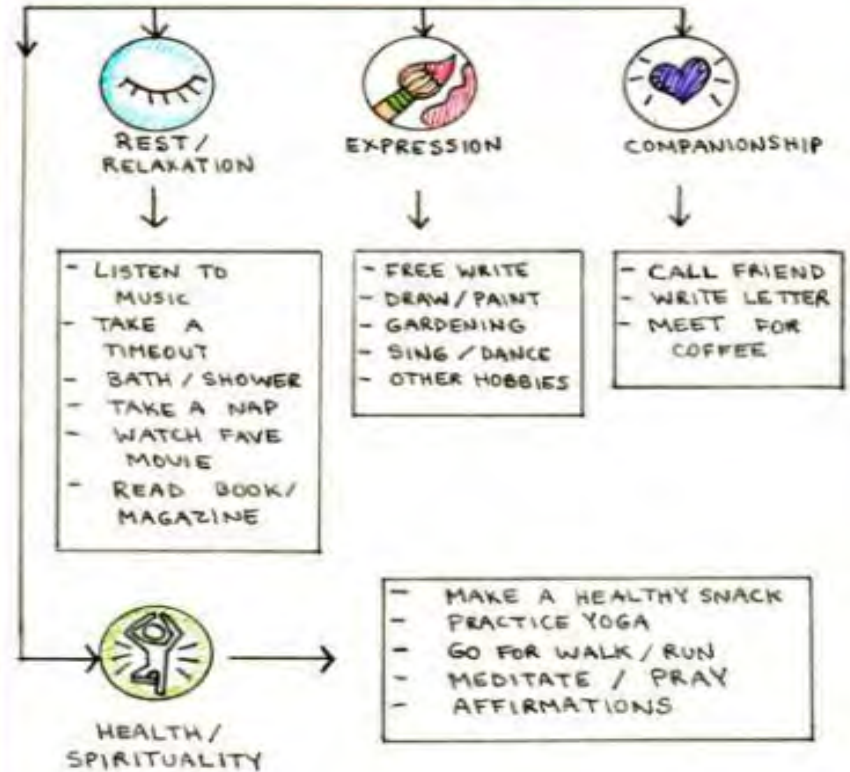 REST/
RELAXATION
- LISTEN TO
MUSIC
- TAKE A
TIMEOUT
- BATH / SHOWER
- TAKE A NAP
- WATCH FAVE
MOVIE
- READ BOOK/
MAGAZINE
EXPRESSION
- FREE WRITE
- DRAW/PAINT
- GARDENING
- SING / DANCE
- OTHER HOBBIES
COMPANIONSHIP
- CALL FRIEND
- WRITE LETTER
- MEET FOR
COFFEE
HEALTH/
SPIRITUALITY
- MAKE A HEALTHY SNACK
- PRACTICE YOGA
- GO FOR WALK / RUN
- MEDITATE / PRAY
- AFFIRMATIONS